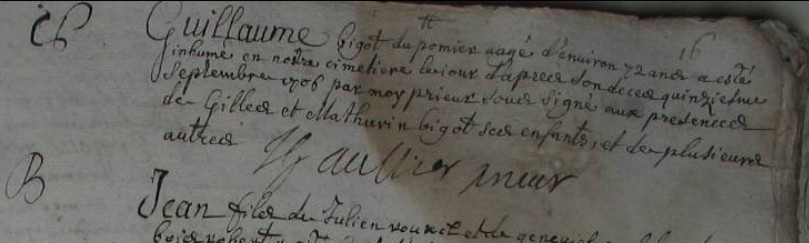 16
Guillaume bigot du pomier aagé d'enuiron 72 ans a esté
inhumé en nostre cimetiere le jour d'apres son deces quinziesme
Septembre 1706 par moy prieur sous signé aux presences
de Gilles et Mathurin bigot ses enfants, et de plusieurs
autres
prieur
B
Jean fils de Julien et de